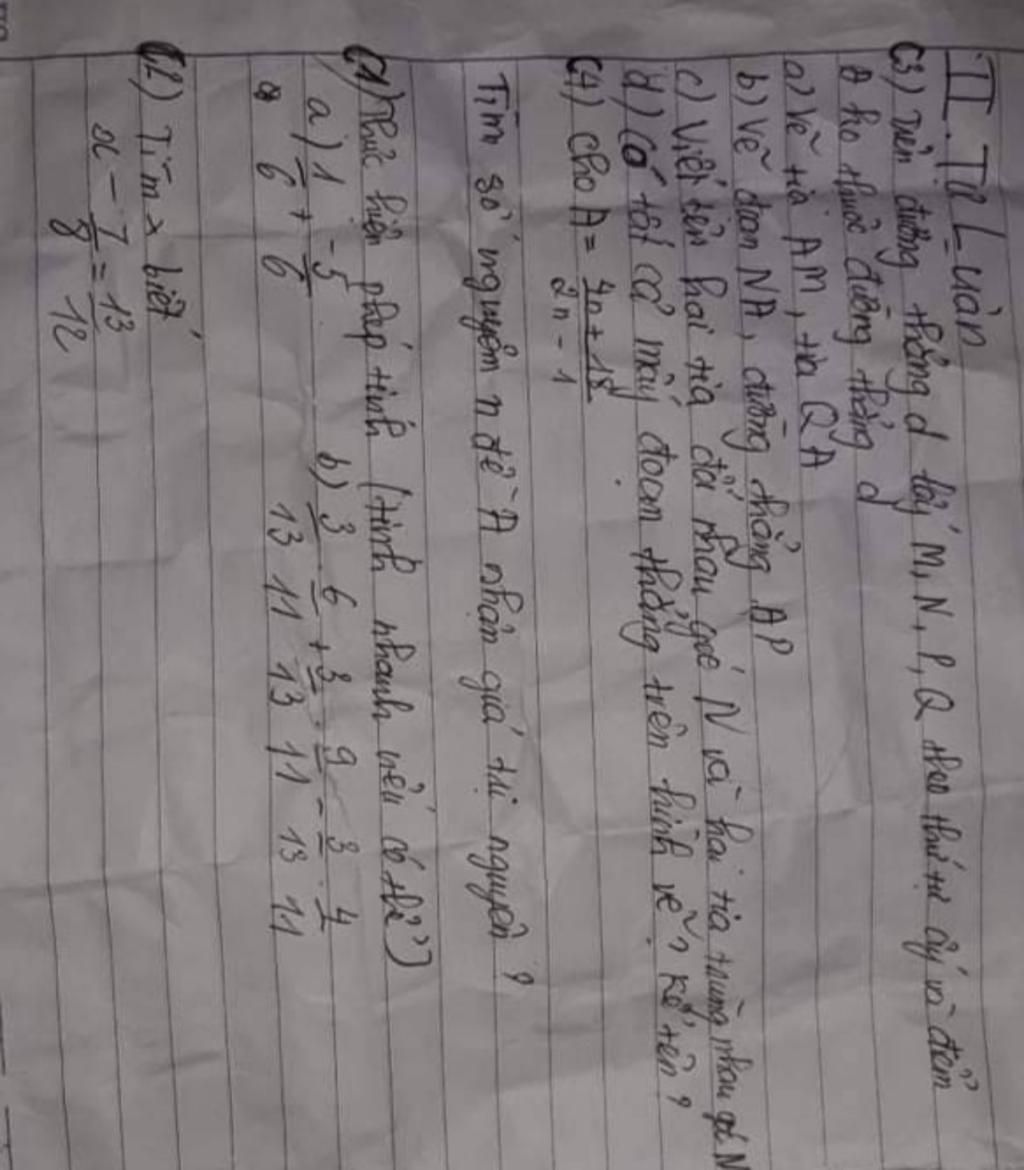 II. Tự Luận
C3) Trên đường thẳng d lấy M, N, P, Q theo thứ tự ấy và điểm
A ko thuộc đường thẳng d
a) Vẽ tia AM, tia QA
b) Vẽ đoạn NA, đường thẳng AP
c) Viết tên hai tia đối nhau gốc N và hai tia trùng nhau gốc N
d) Có tất cả mấy đoạn thẳng trên hình vẽ? Kể tên?
C4) Cho A = 4n + 18 / 2n - 1
Tìm số nguyên n để A nhận giá trị nguyên?
C1) Thực hiện phép tính (tính nhanh nếu có thể)
a) 1/6 + -5/6 b) 3/13 . 6/11 + 3/13 . 9/11 - 3/13 . 4/11
C2) Tìm x biết
x - 7/8 = 13/12